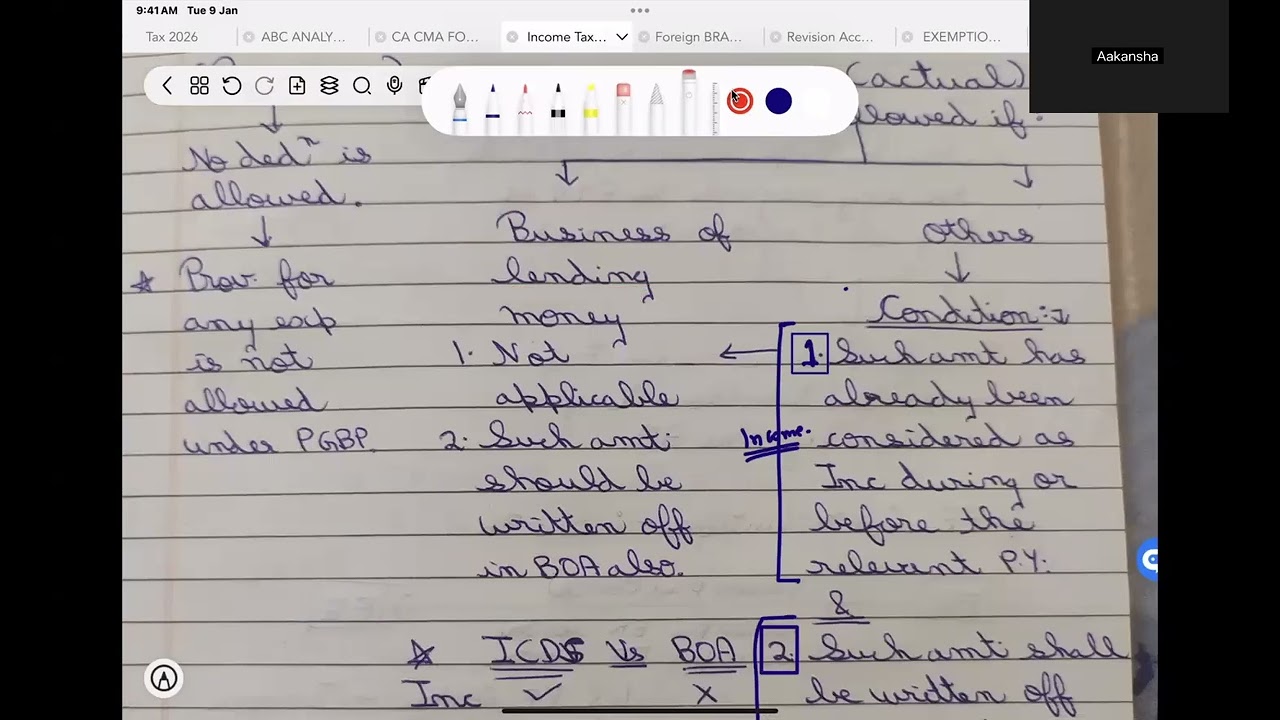 9:41 AM Tue 9 Jan
Tax 2026
ABC ANALY...
CA CMA FO...
Income Tax...
Foreign BRA...
Revision Acc...
EXEMPTIO...
Aakansha
(actual)
allowed if:
No dedⁿ is
allowed.
☆ Prov. for
any exp
is not
allowed
under PGBP.
Business of
lending
money
1. Not
applicable
2. Such amt.
should be
written off
in BOA also.
Others
Condition:
1. Such amt has
already been
considered as
Inc during or
before the
relevant P.Y.
Income.
&
2. Such amt. shall
be written off
☆ ICDS Vs BOA
Inc ✓ X